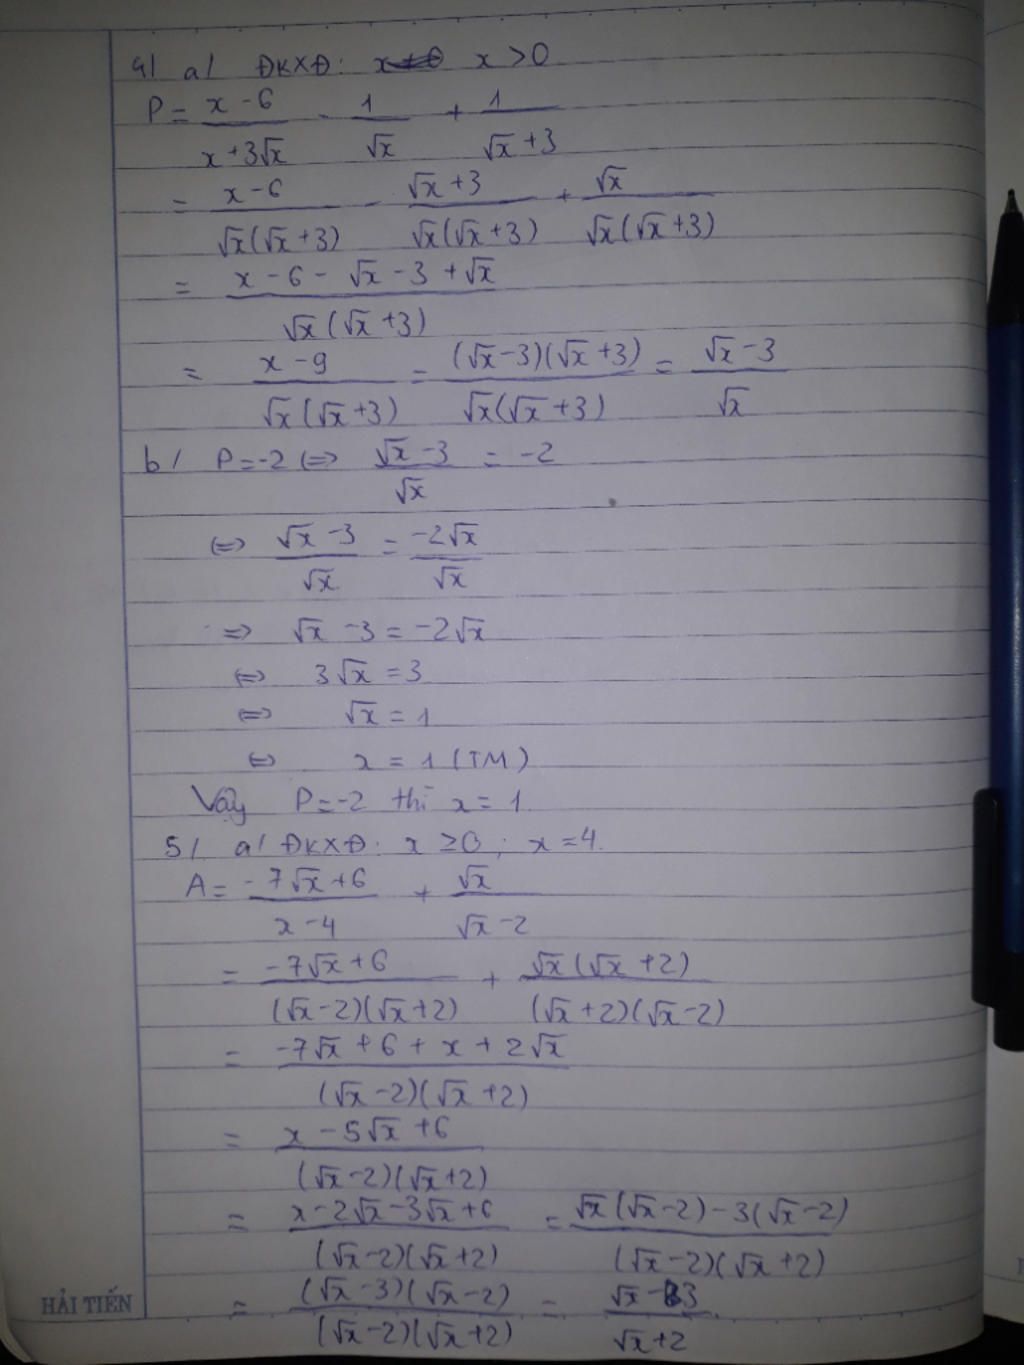 4/ a/ ĐKXĐ: x > 0
P = (x - 6)/(x + 3√x) - 1/√x + 1/(√x + 3)
= (x - 6)/(√x(√x + 3)) - (√x + 3)/(√x(√x + 3)) + √x/(√x(√x + 3))
= (x - 6 - √x - 3 + √x)/(√x(√x + 3))
= (x - 9)/(√x(√x + 3)) = ((√x - 3)(√x + 3))/(√x(√x + 3)) = (√x - 3)/√x
b/ P = -2 <=> (√x - 3)/√x = -2
<=> (√x - 3)/√x = (-2√x)/√x
=> √x - 3 = -2√x
<=> 3√x = 3
<=> √x = 1
<=> x = 1 (TM)
Vậy P = -2 thì x = 1
5/ a/ ĐKXĐ: x ≥ 0; x = 4.
A = (-7√x + 6)/(x - 4) + √x/(√x - 2)
= (-7√x + 6)/((√x - 2)(√x + 2)) + (√x(√x + 2))/((√x + 2)(√x - 2))
= (-7√x + 6 + x + 2√x)/((√x - 2)(√x + 2))
= (x - 5√x + 6)/((√x - 2)(√x + 2))
= (x - 2√x - 3√x + 6)/((√x - 2)(√x + 2)) = (√x(√x - 2) - 3(√x - 2))/((√x - 2)(√x + 2))
= ((√x - 3)(√x - 2))/((√x - 2)(√x + 2)) = (√x - 3)/(√x + 2)
HẢI TIẾN